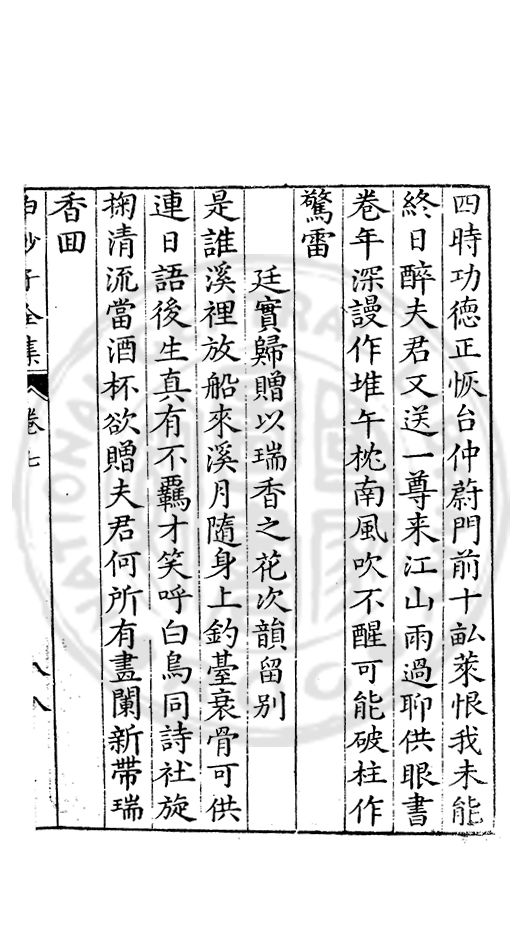 四時功德正恢台仲蔚門前十畝萊恨我未能
終日醉夫君又送一尊来江山雨過聊供眼書
卷年深謾作堆午枕南風吹不醒可能破柱作
驚雷
廷實歸贈以瑞香之花次韻留别
是誰溪裡放船來溪月隨身上釣臺衰骨可供
連日語後生真有不羈才笑呼白鳥同詩社旋
掬清流當酒杯欲贈夫君何所有盡闌新帶瑞
香回
白沙子全集 卷七 八八